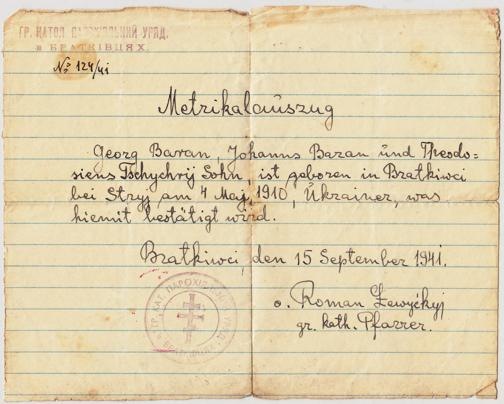 ГР. КАТОЛ. ПАРОХІЯЛЬНИЙ УРЯД.
в БРАТКІВЦЯХ.
№ 124/41
Metrikalauszug
Georg Baran, Johanns Baran und Theodo-
siens Tschychrij Sohn, ist geboren in Bratkiwci
bei Stryj am 4 Maj, 1910, Ukrainer, was
hiemit bestätigt wird.
Bratkiwci, den 15 September 1941.
o. Roman
gr. kath. Pfarrer.
ГР. КАТ. ПАРОХІЯЛЬНИЙ УРЯД